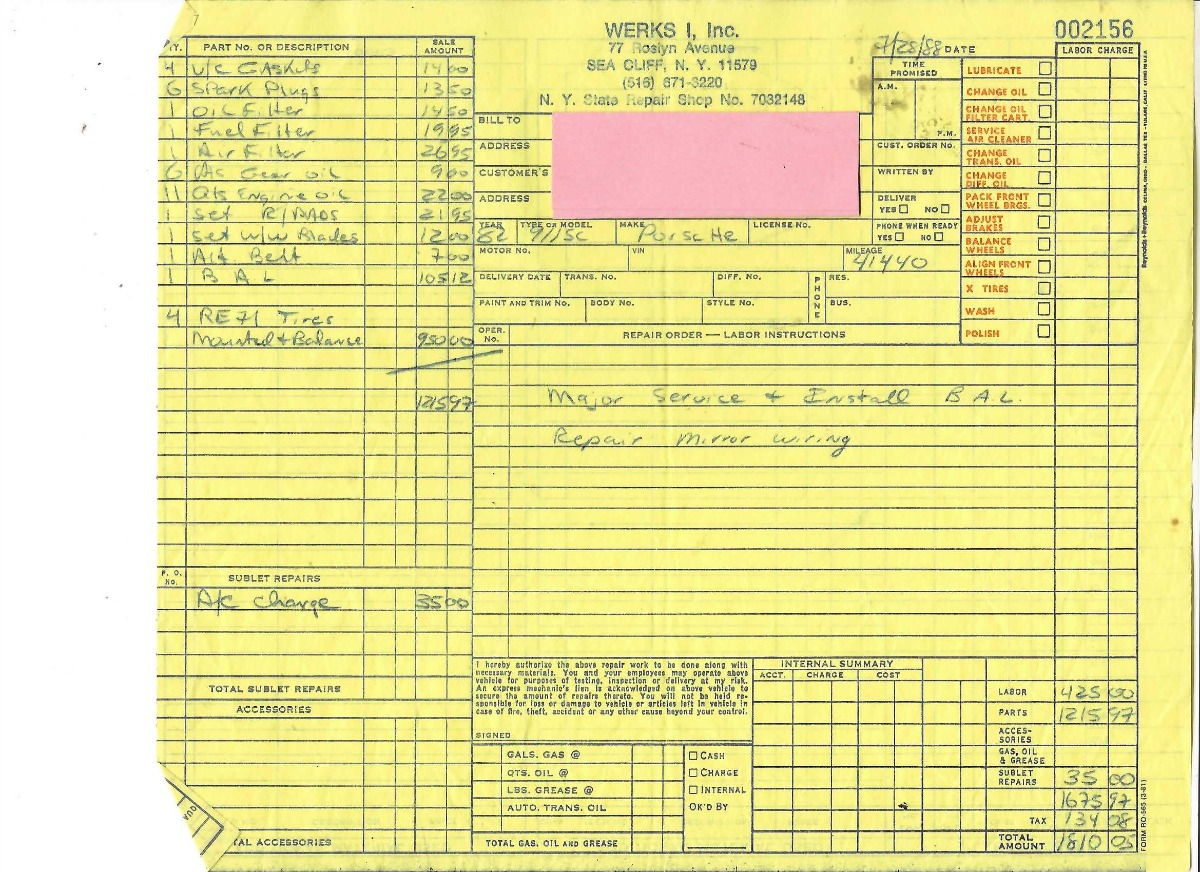 WERKS I, Inc.
77 Roslyn Avenue
SEA CLIFF, N. Y. 11579
(516) 671-3220
N. Y. State Repair Shop No. 7032148
002156
7/28/88 DATE
TY. PART No. OR DESCRIPTION SALE AMOUNT
4 V/C Gaskets 14 00
6 Spark Plugs 13 50
1 Oil Filter 14 50
1 Fuel Filter 19 95
1 Air Filter 26 95
6 Gear oil 9 00
11 Qts Engine oil 22 00
1 Set R/PADS 21 95
1 Set W/W Blades 12 00
1 Alt Belt 7 00
1 B A L 105 12
4 RE71 Tires
Mounted & Balance 950 00
1215 97
P. O. No. SUBLET REPAIRS
A/C Charge 35 00
TOTAL SUBLET REPAIRS
ACCESSORIES
AL ACCESSORIES
BILL TO
ADDRESS
CUSTOMER'S
ADDRESS
YEAR 82 TYPE OR MODEL 911SC MAKE Porsche LICENSE No.
MOTOR NO. VIN MILEAGE 41440
DELIVERY DATE TRANS. No. DIFF. No. PHONE RES.
PAINT AND TRIM No. BODY No. STYLE No. BUS.
TIME PROMISED
A.M.
P.M.
CUST. ORDER No.
WRITTEN BY
DELIVER
YES NO
PHONE WHEN READY
YES NO
LABOR CHARGE
LUBRICATE
CHANGE OIL
CHANGE OIL FILTER CART.
SERVICE AIR CLEANER
CHANGE TRANS. OIL
CHANGE DIFF. OIL
PACK FRONT WHEEL BRGS.
ADJUST BRAKES
BALANCE WHEELS
ALIGN FRONT WHEELS
X TIRES
WASH
POLISH
OPER. No. REPAIR ORDER — LABOR INSTRUCTIONS
Major Service & Install B A L.
Repair Mirror wiring
I hereby authorize the above repair work to be done along with
necessary materials. You and your employees may operate above
vehicle for purposes of testing, inspection or delivery at my risk.
An express mechanic's lien is acknowledged on above vehicle to
secure the amount of repairs thereto. You will not be held re-
sponsible for loss or damage to vehicle or articles left in vehicle in
case of fire, theft, accident or any other cause beyond your control.
SIGNED
GALS. GAS @
QTS. OIL @
LBS. GREASE @
AUTO. TRANS. OIL
TOTAL GAS, OIL AND GREASE
CASH
CHARGE
INTERNAL
OK'D BY
INTERNAL SUMMARY
ACCT. CHARGE COST
LABOR 425 00
PARTS 1215 97
ACCES-SORIES
GAS, OIL & GREASE
SUBLET REPAIRS 35 00
1675 97
TAX 134 08
TOTAL AMOUNT 1810 05
FORM RO-565 (3-81)